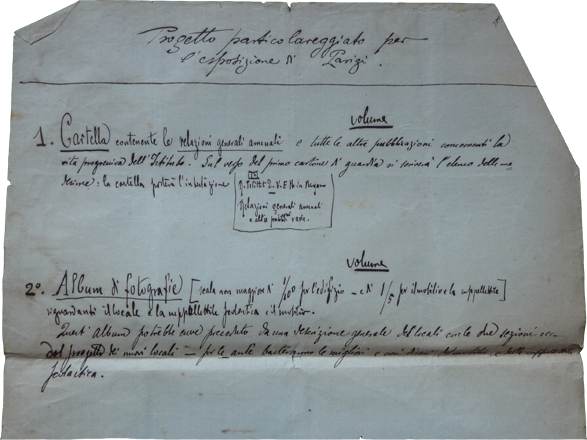 Progetto particolareggiato per
l'esposizione di Parigi.
volume
1. Cartella contenente le relazioni generali annuali e tutte le altre pubblicazioni concernenti la
vita progressiva dell'Istituto. Sul verso del primo cartone di guardia si scriverà l'elenco delle me
desime: la cartella porterà l'intestazione
R. Istituto V. E. in
Relazioni generali annuali
e altre pubbl. varie.
volume
2º. Album di fotografie [scala non maggiore di 1/100 per l'edifizio e di 1/5 per il mobilio e la suppellettile]
riguardanti il locale e la suppellettile scolastica e il mobilio.
Quest'album potrebbe essere preceduto da una descrizione generale dei locali con le due sezioni
del progetto dei nuovi locali — per le aule basteranno le migliori e
scolastica.